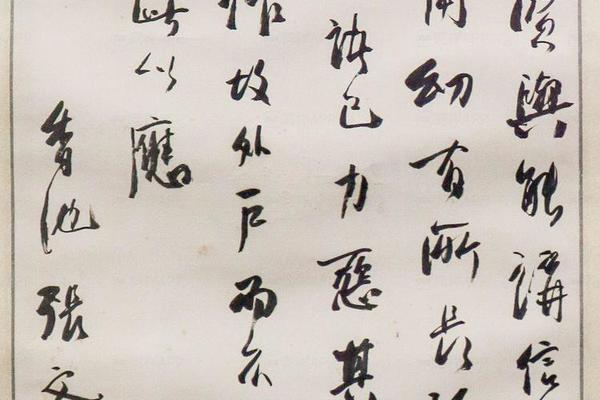 賢與能講信
用幼有所長
己力惡其
作故外戶而不
此以應
香池張